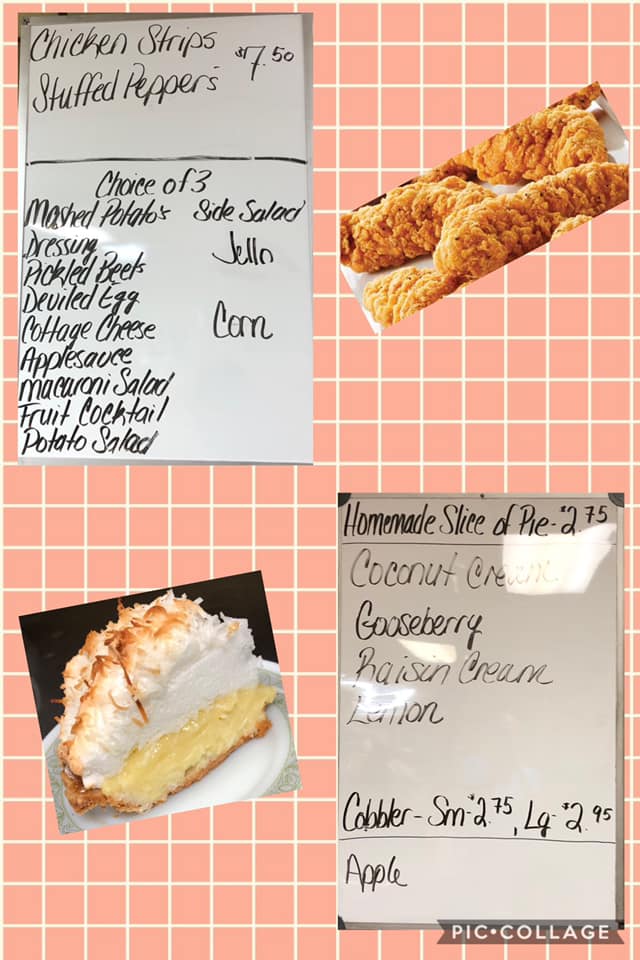 Chicken Strips $7.50
Stuffed Peppers
Choice of 3
Mashed Potato's Side Salad
Dressing Jello
Pickled Beets
Deviled Egg
Cottage Cheese Corn
Applesauce
Macaroni Salad
Fruit Cocktail
Potato Salad
Homemade Slice of Pie - $2.75
Coconut Cream
Gooseberry
Raisin Cream
Lemon
Cobbler - Sm - $2.75, Lg - $2.95
Apple
PIC•COLLAGE